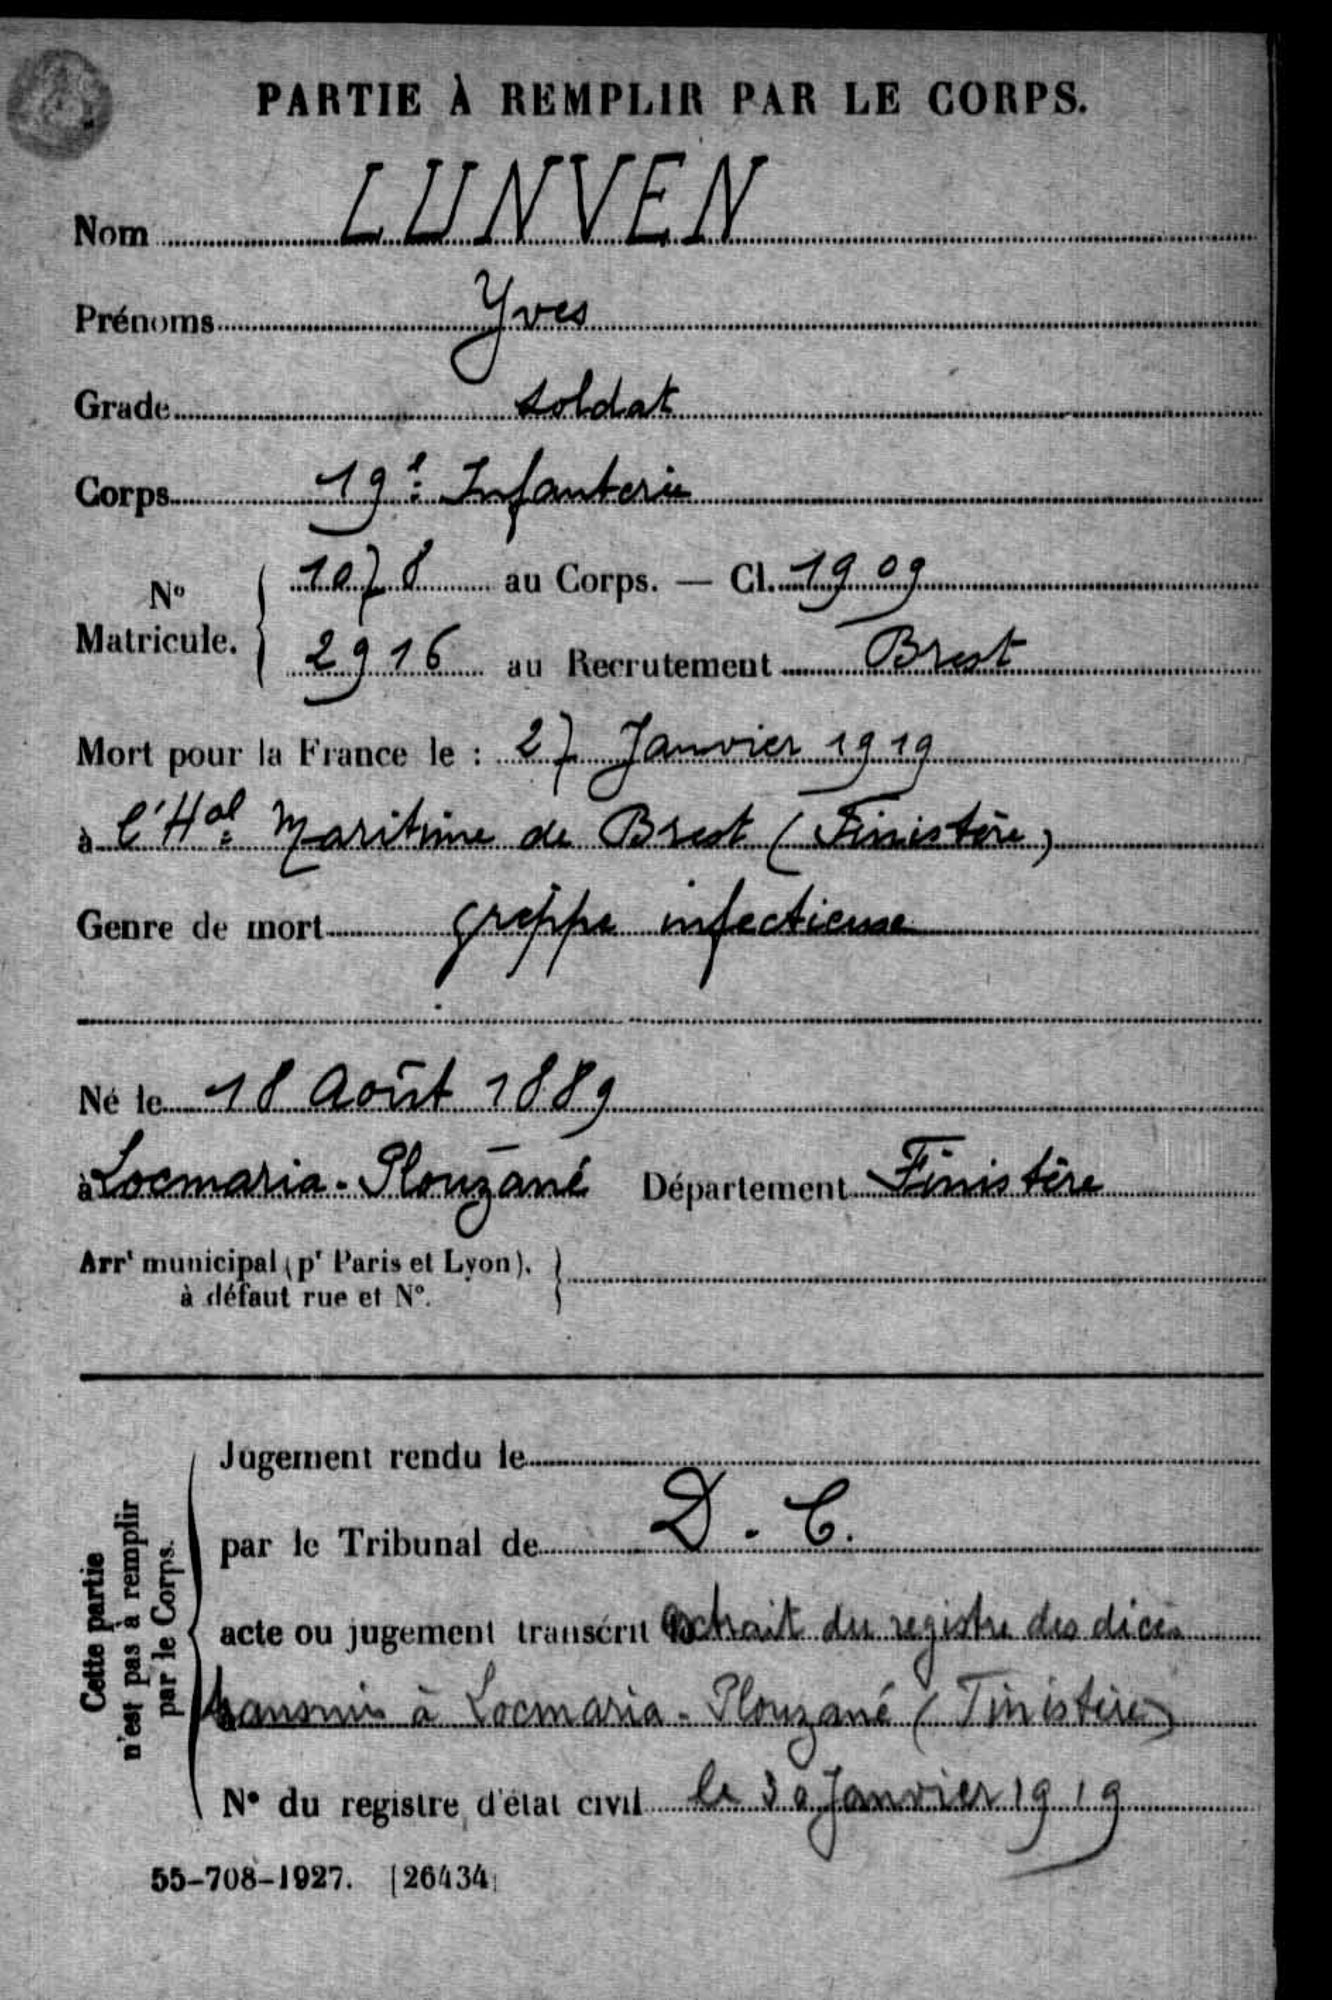 PARTIE À REMPLIR PAR LE CORPS.
Nom LUNVEN
Prénoms Yves
Grade soldat
Corps 19e Infanterie
N° Matricule. 1078 au Corps. — Cl. 1909
2916 au Recrutement Brest
Mort pour la France le : 27 Janvier 1919
à l'Hal Maritime de Brest (Finistère)
Genre de mort grippe infectieuse
Né le 18 Août 1889
à Locmaria-Plouzané Département Finistère
Arrt municipal (pr Paris et Lyon),
à défaut rue et N°.
Cette partie
n'est pas à remplir
par le Corps.
Jugement rendu le
par le Tribunal de D. C.
acte ou jugement transcrit extrait du registre des décès
transmis à Locmaria-Plouzané (Finistère)
N° du registre d'état civil le 30 Janvier 1919
55-708-1927. [26434]